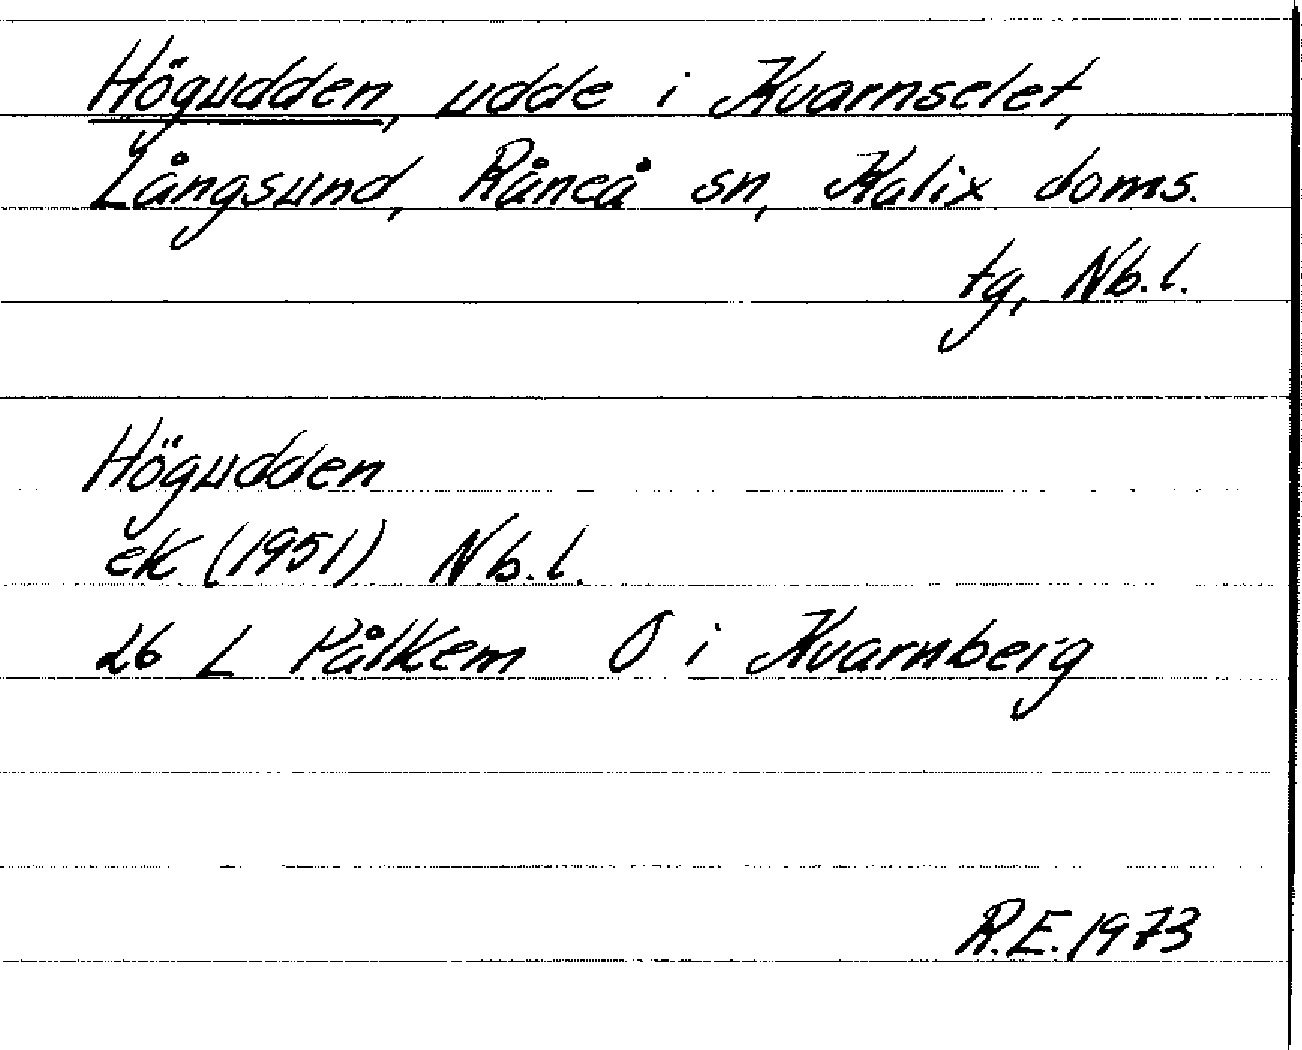 Högudden, udde i Kvarnselet,
Långsund, Råneå sn, Kalix doms.
tg, Nb.l.
Högudden
ek (1951) Nb.l.
26 L Pålkem O i Kvarnberg
R.E. 1973